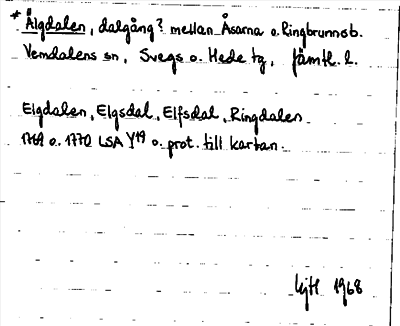 * Älgdalen, dalgång? mellan Åsarna o. Ringbrunnsb.
Vemdalens sn, Svegs o. Hede tg, Jämtl. l.
Elgdalen, Elgsdal, Elfsdal, Ringdalen
1769 o. 1770 LSA Y19 o. prot. till kartan.
1968